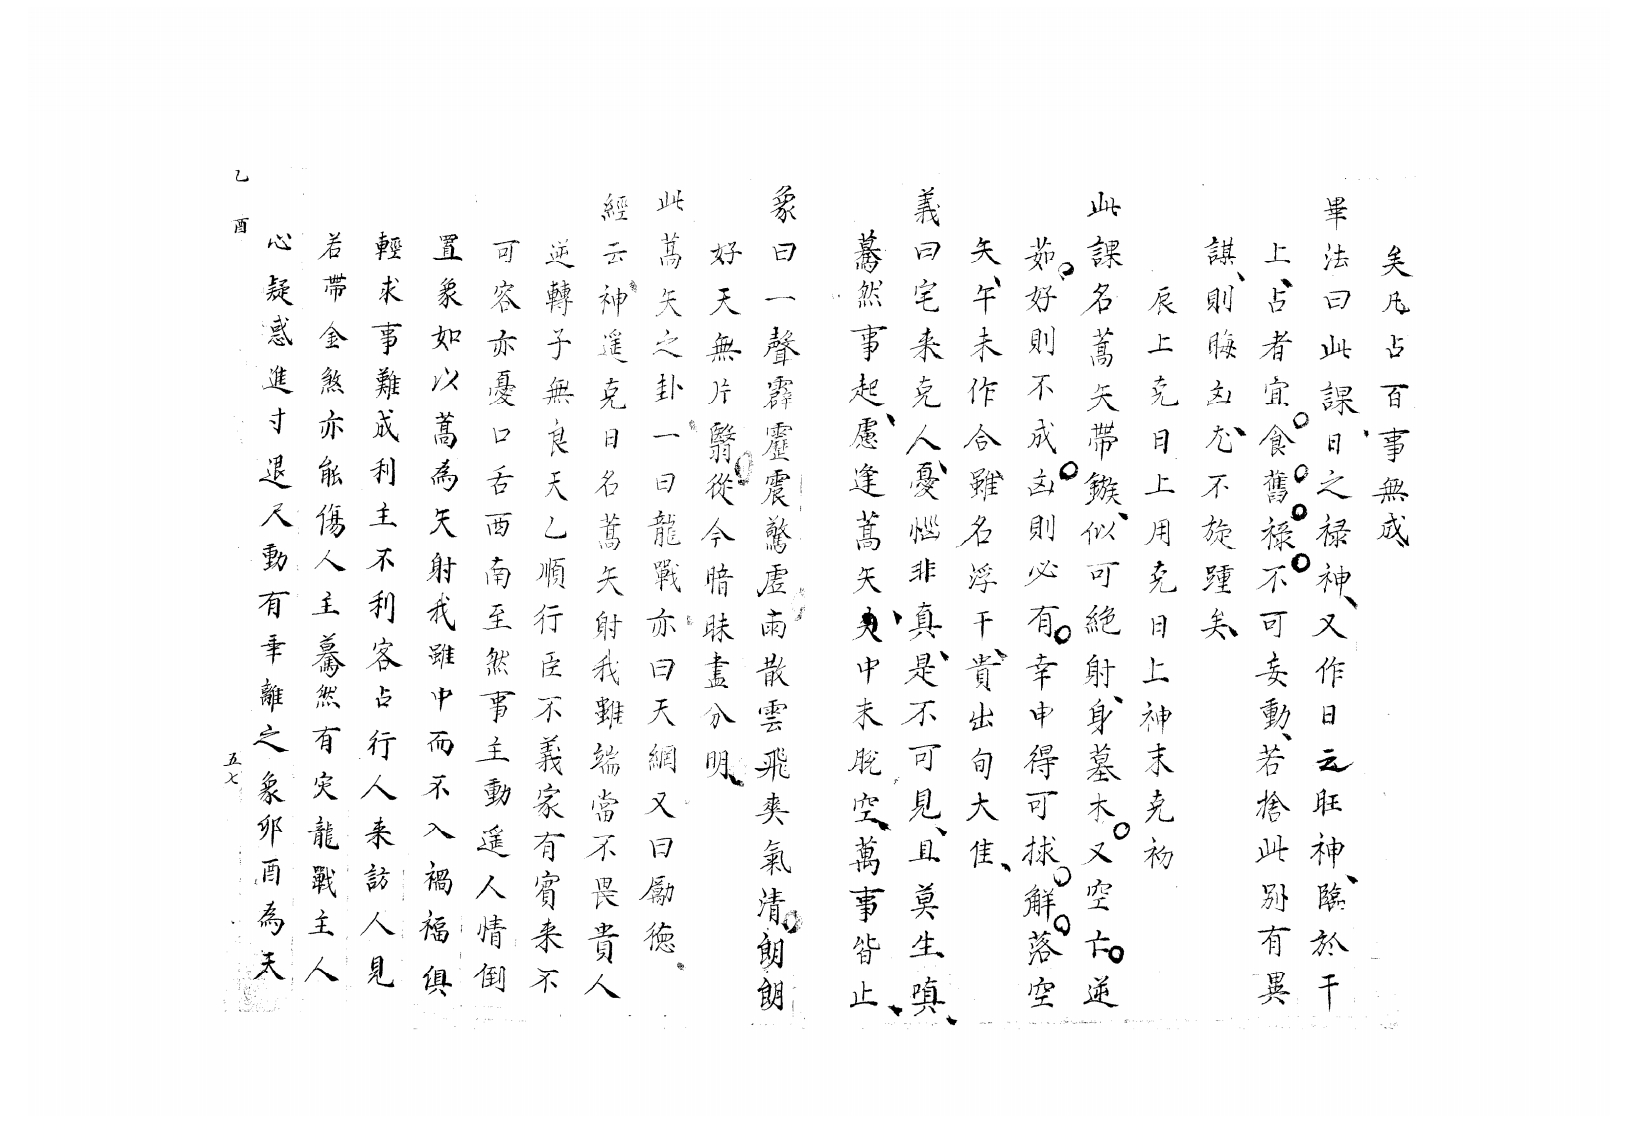 矣凡占百事無成
畢法曰此課日之祿神又作日云旺神臨於干
上占者宜食舊祿不可妄動若捨此别有異
謀則晦凶尤不旋踵矣
辰上克日上用克日上神末克初
此課名蒿矢帶鏃似可絕射身墓木又空亡逆
茹好則不成凶則必有幸申得可捄解落空
矢午未作合雖名浮干貴出旬大佳
義曰宅来克人憂惱非真是不可見且莫生嗔
驀然事起慮逢蒿矢矢中末脫空萬事皆止
象曰一聲霹靂震驚虛雨散雲飛爽氣清朗朗
好天無片翳從今暗昧盡分明
此蒿矢之卦一曰龍戰亦曰天網又曰勵德
經云神遥克日名蒿矢射我雖端當不畏貴人
逆轉子無良天乙順行臣不義家有賓来不
可容亦憂口舌西南至然事主動遥人情倒
置象如以蒿為矢射我雖中而不入禍福俱
輕求事難成利主不利客占行人来訪人見
若帶金煞亦能傷人主驀然有灾龍戰主人
心疑惑進寸退尺動有乖離之象卯酉為天
乙酉
五七